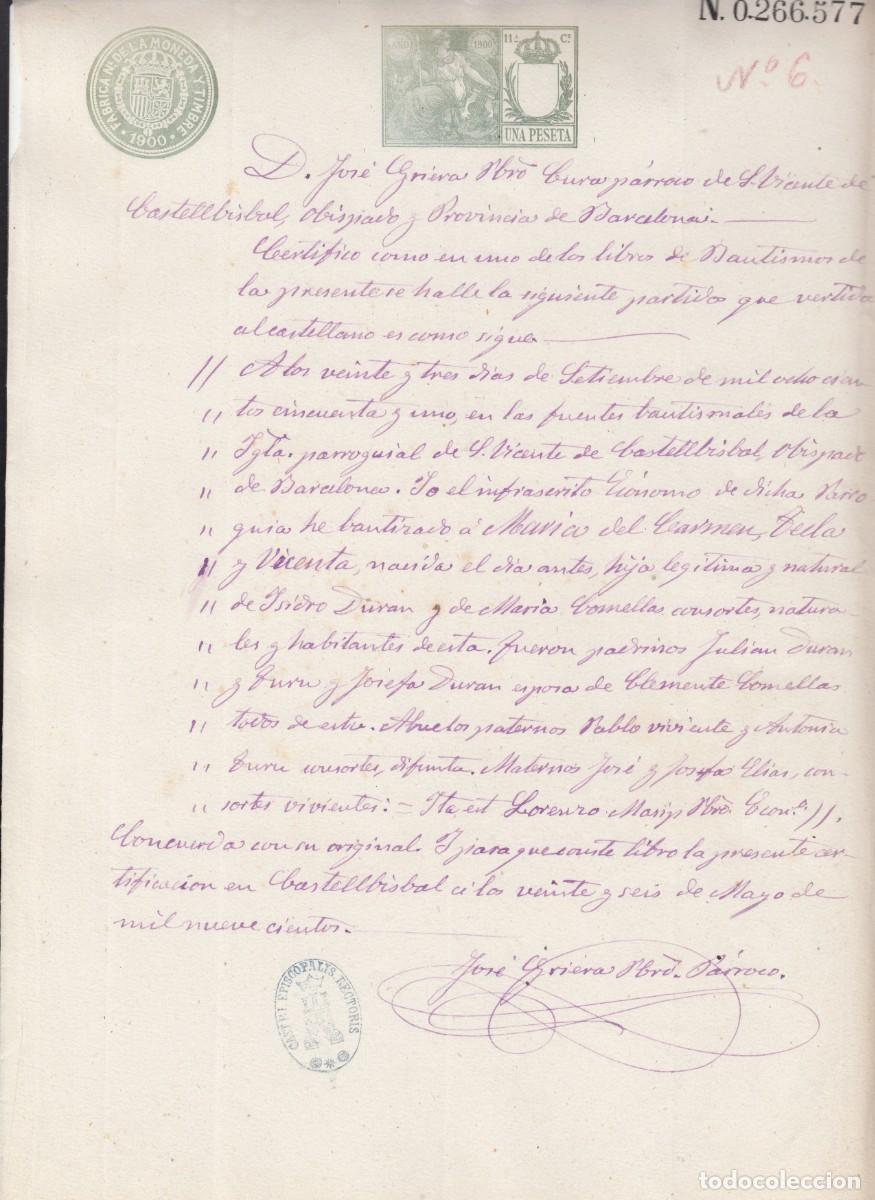 N. 0.266.577
Nº 6.
FABRICA Nl. DE LA MONEDA Y TIMBRE
· 1900 ·
AÑO 1900
11ª Cª
UNA PESETA
D. José Griera Pbrò Cura párroco de S. Vicente de
Castellbisbal, Obispado y Provincia de Barcelona. —
Certifico como en uno de los libros de Bautismos de
la presente se halla la siguiente partida que vertida
al castellano es como sigue —
// A los veinte y tres dias de Setiembre de mil ocho cien
" tos cincuenta y uno, en las fuentes bautismales de la
" Iglа. parroquial de S. Vicente de Castellbisbal, Obispado
" de Barcelona. Yo el infrascrito Ecónomo de dicha Parro
" quia he bautizado á Maria del Carmen, Tecla
" y Vicenta, nacida el dia antes, hija legitima y natural
" de Isidro Duran y de Maria Comellas consortes, natura-
" les y habitantes de esta. Fueron padrinos Julian Duran
" y Turu y Josefa Duran esposa de Clemente Comellas
" todos de esta. Abuelos paternos Pablo viviente y Antonia
" Turu consortes, difunta. Maternos José y Josefa Elias, con-
" sortes vivientes: = Ita est Lorenzo Masip Pbrò. Econ.º //.
Concuerda con su original. I para que conste libro la presente cer-
tificacion en Castellbisbal á los veinte y seis de Mayo de
mil nueve cientos. —
José Griera Pbrò. Párroco.
CASTRI EPISCOPALIS RECTORIS
todocoleccion.net